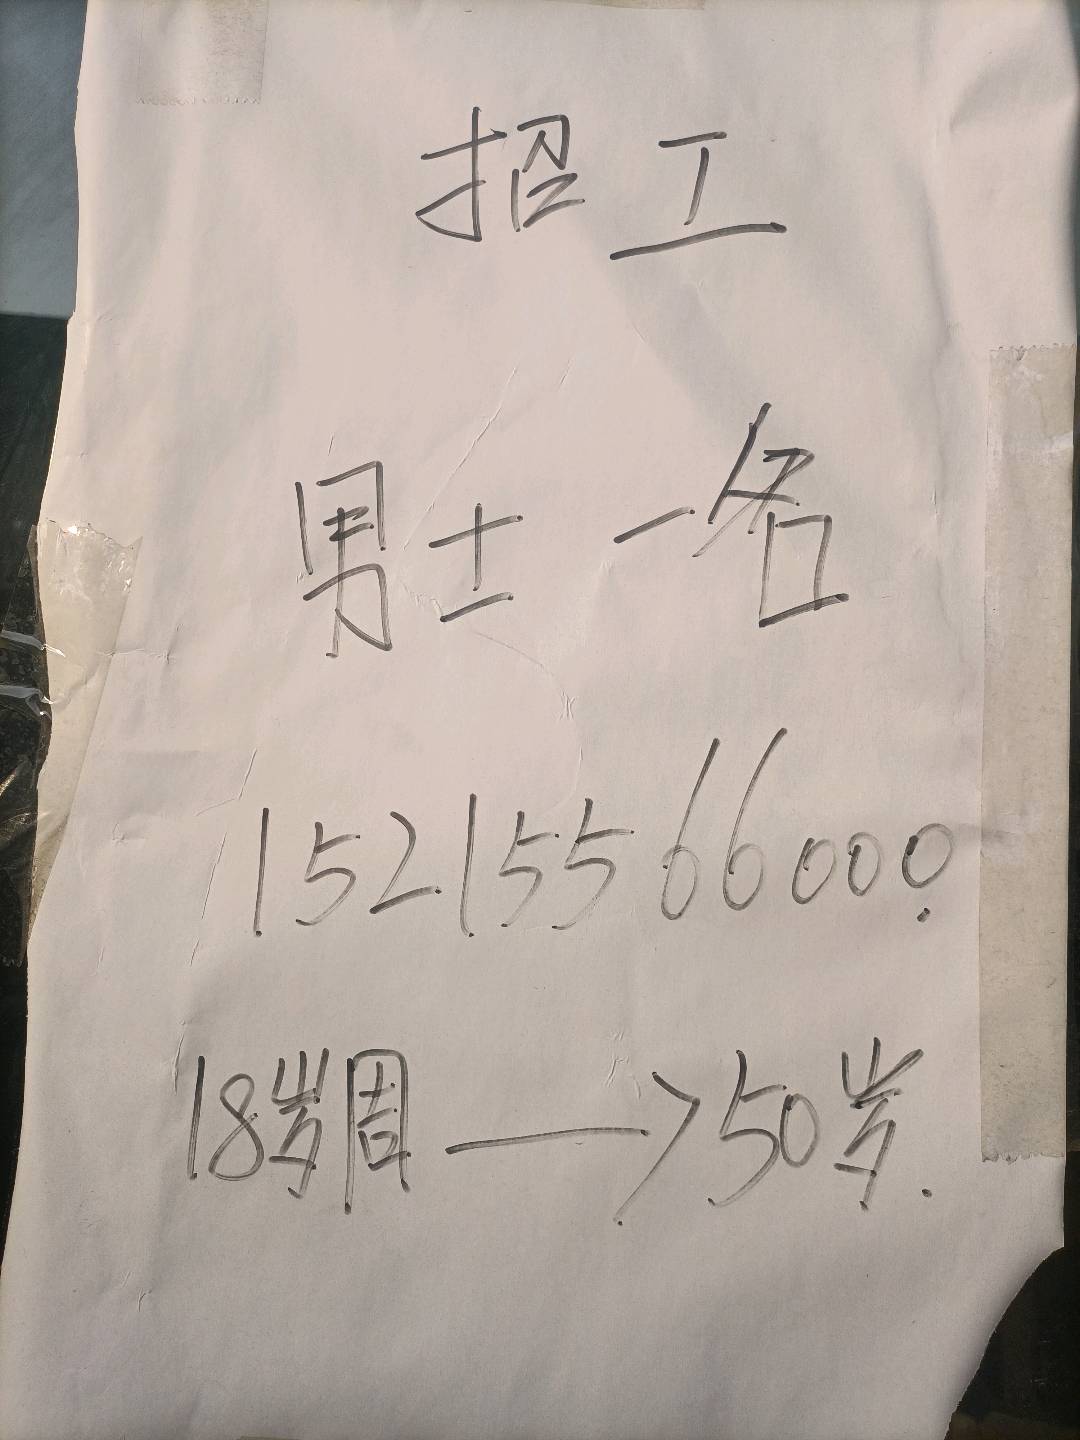 招工
男士一名
15215566000.
18岁周—>50岁.